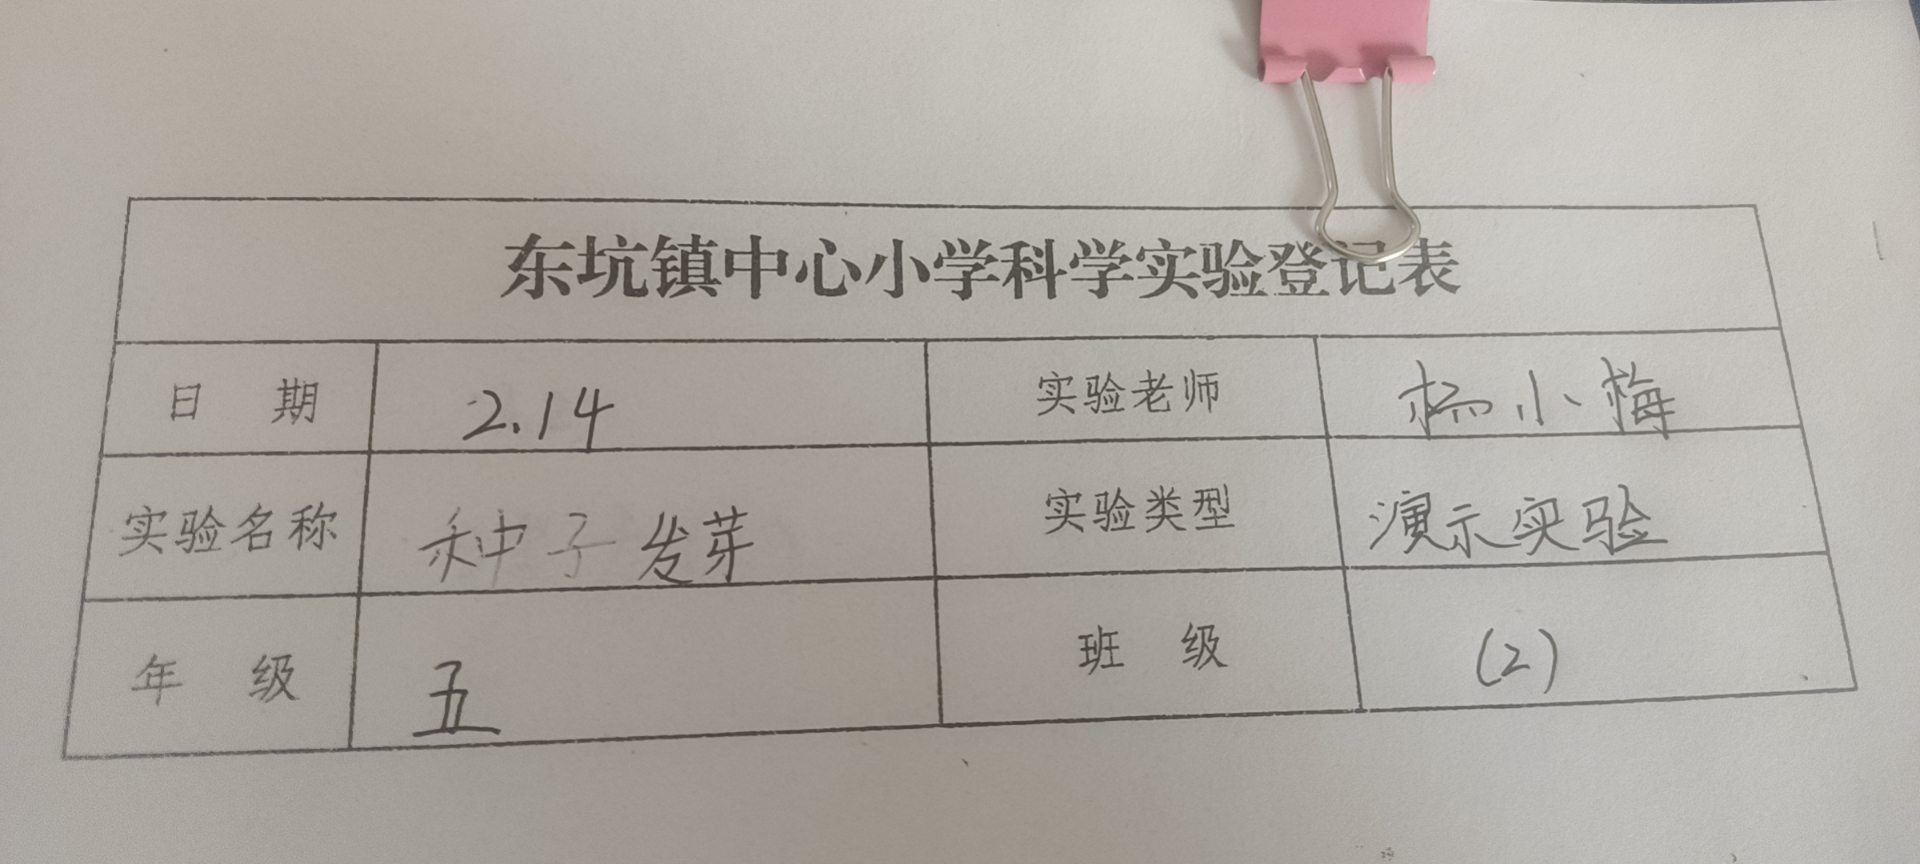 东坑镇中心小学科学实验登记表
日 期 2.14 实验老师 杨小梅
实验名称 种子发芽 实验类型 演示实验
年 级 五 班 级 (2)